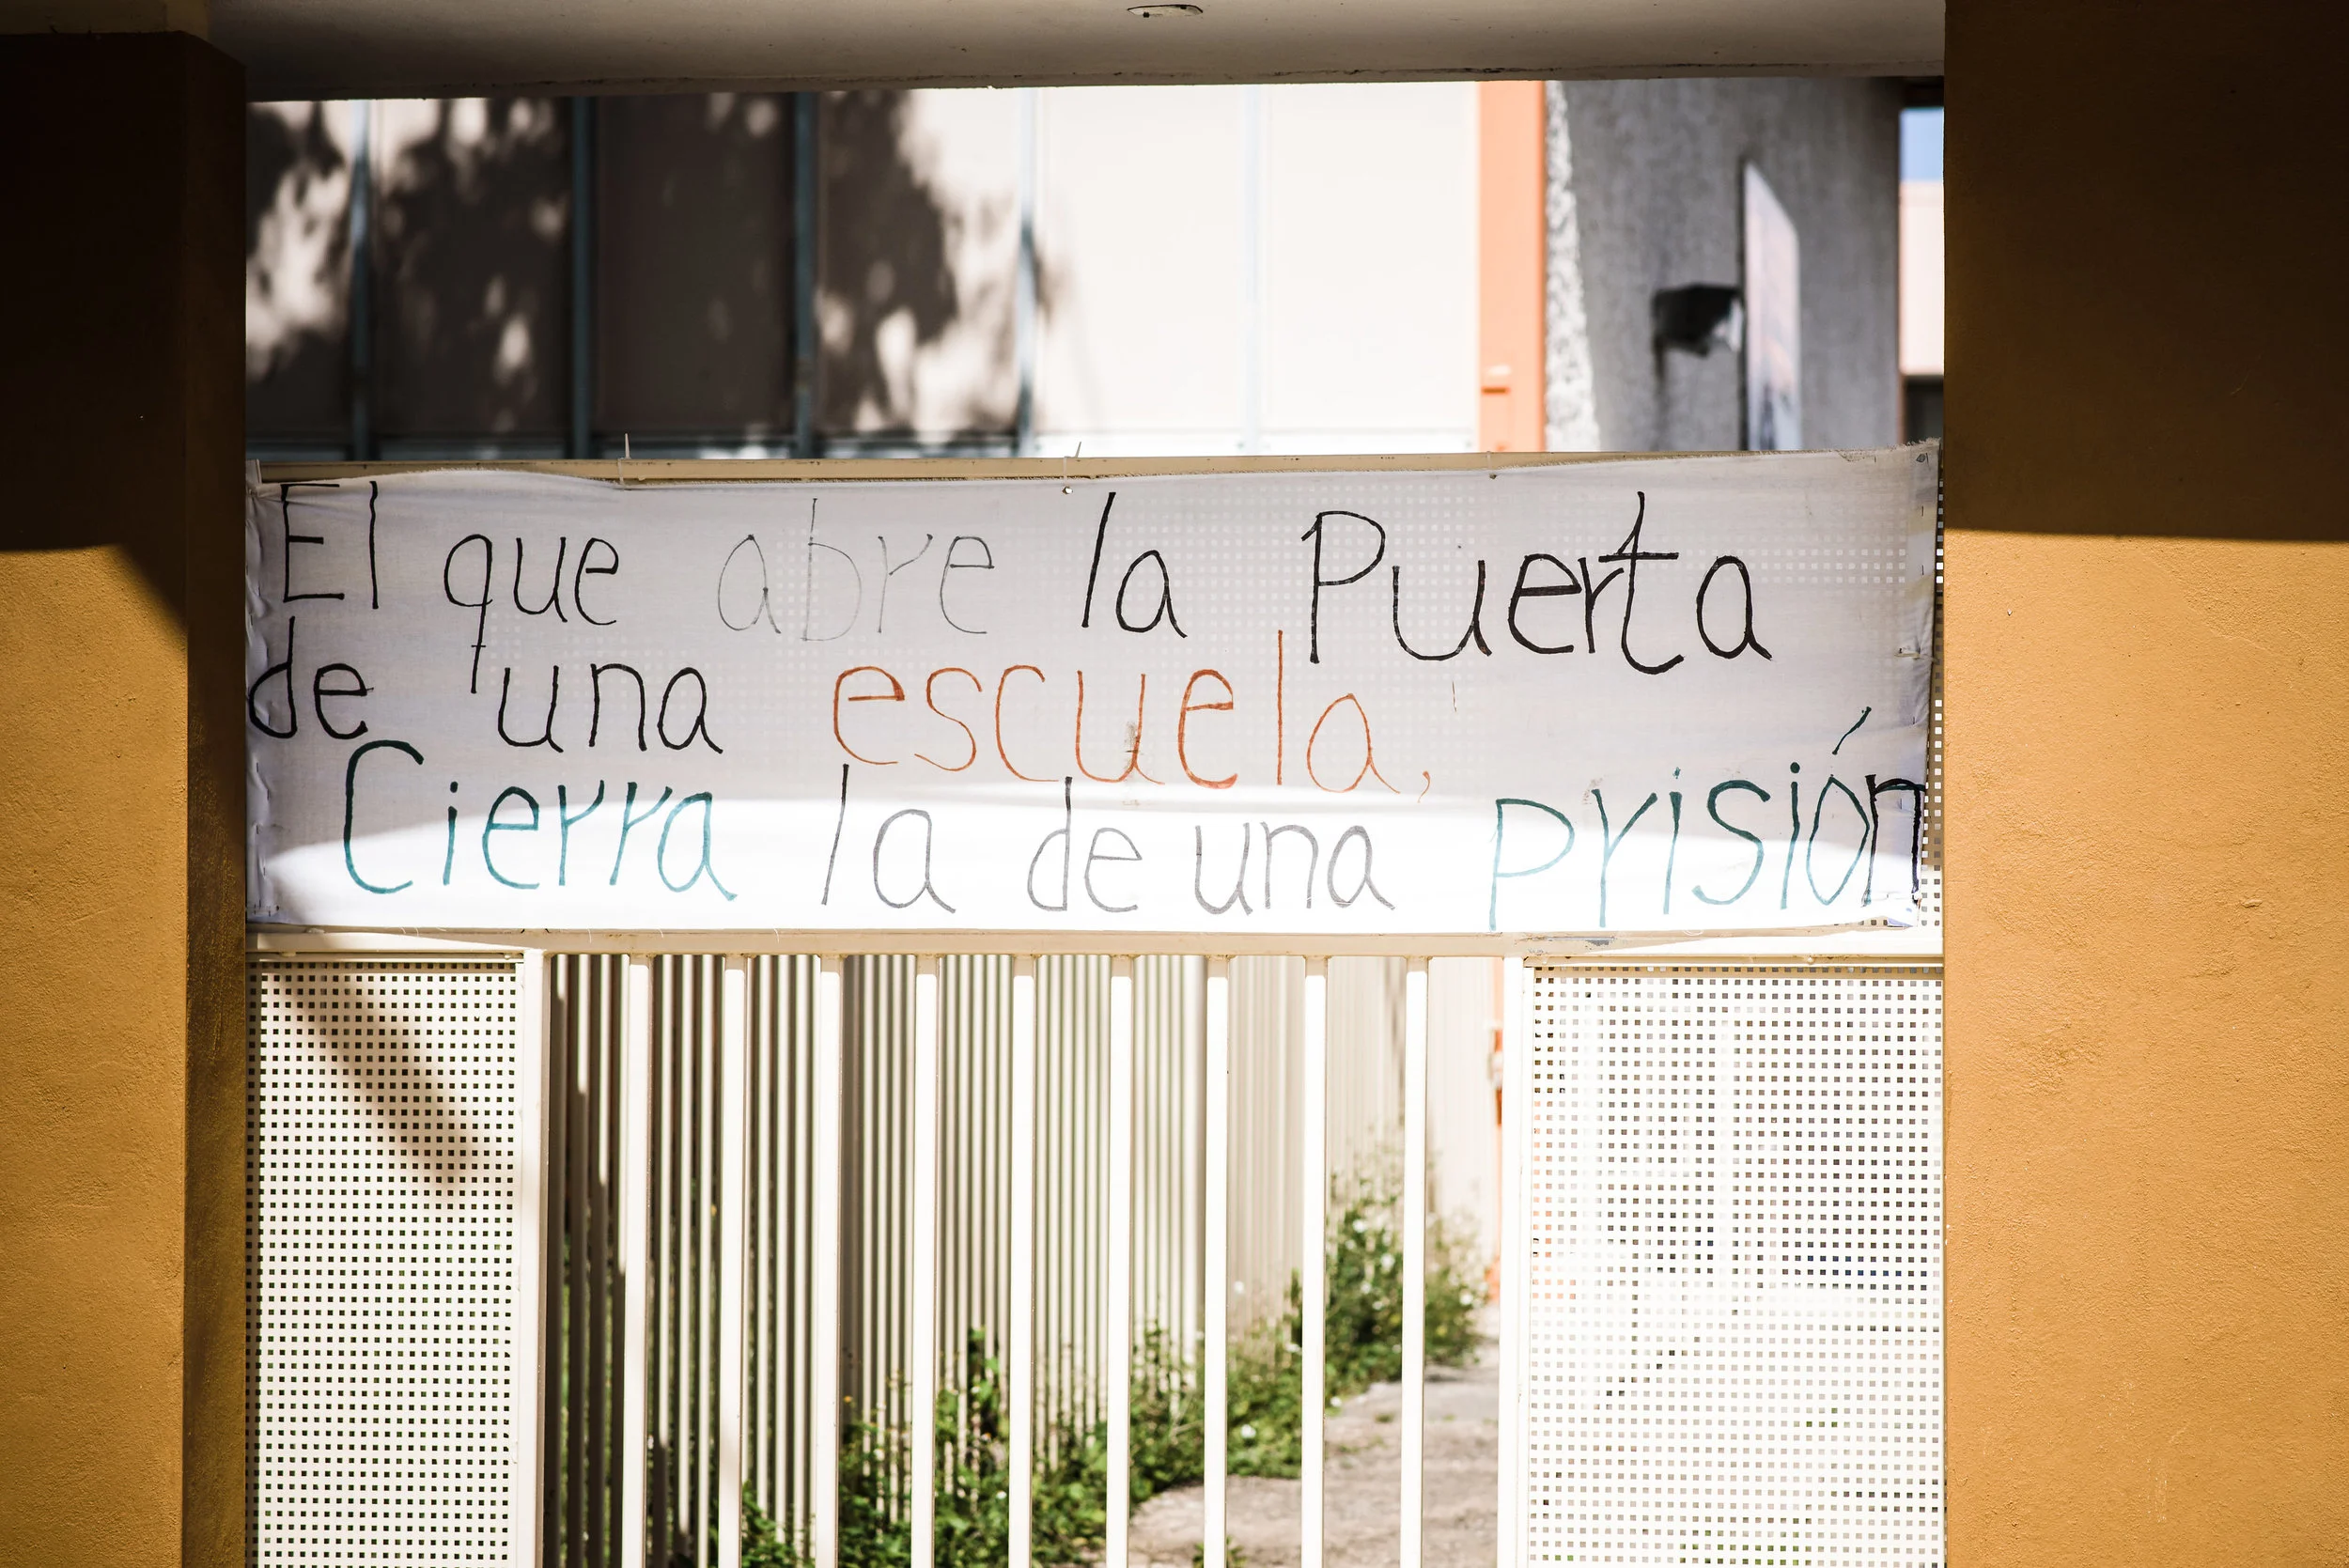 El que abre la Puerta
de una escuela,
Cierra la de una prisión